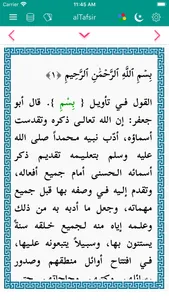 11:45 AM
alTafsir
بِسْمِ ٱللَّهِ ٱلرَّحْمَٰنِ ٱلرَّحِيمِ ﴿١﴾
القول في تأويل { بِسْمِ }. قال أبو
جعفر: إن الله تعالى ذكره وتقدست
أسماؤه، أدّب نبيه محمداً صلى الله
عليه وسلم بتعليمه تقديم ذكر
أسمائه الحسنى أمام جميع أفعاله،
وتقدم إليه في وصفه بها قبل جميع
مهماته، وجعل ما أدبه به من ذلك
وعلمه إياه منه لجميع خلقه سنةً
يستنون بها، وسبيلاً يتبعونه عليها،
في افتتاح أوائل منطقهم وصدور